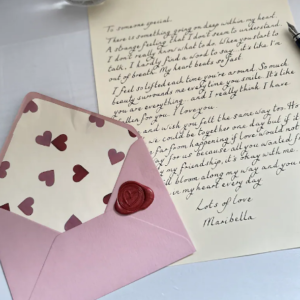 To someone special,
There is something going on deep within my heart.
A strange feeling that I don't seem to understand
I don't really know what to do. When you start to
talk, I hardly find a word to say. it's like I'm
out of breath. My heart beats so fast
I feel so lifted each time you're around. So much
beauty surrounds me everytime you smile. It's like
you are everything. and I really think I have
fallen for you. I love you
and wish you felt the same way too. Ho
could be together one day but if
far from happening if love would not
for us because all you wanted
my friendship, it's okay with me
bloom along my way and you
in my heart every day
Lots of love
Maribella